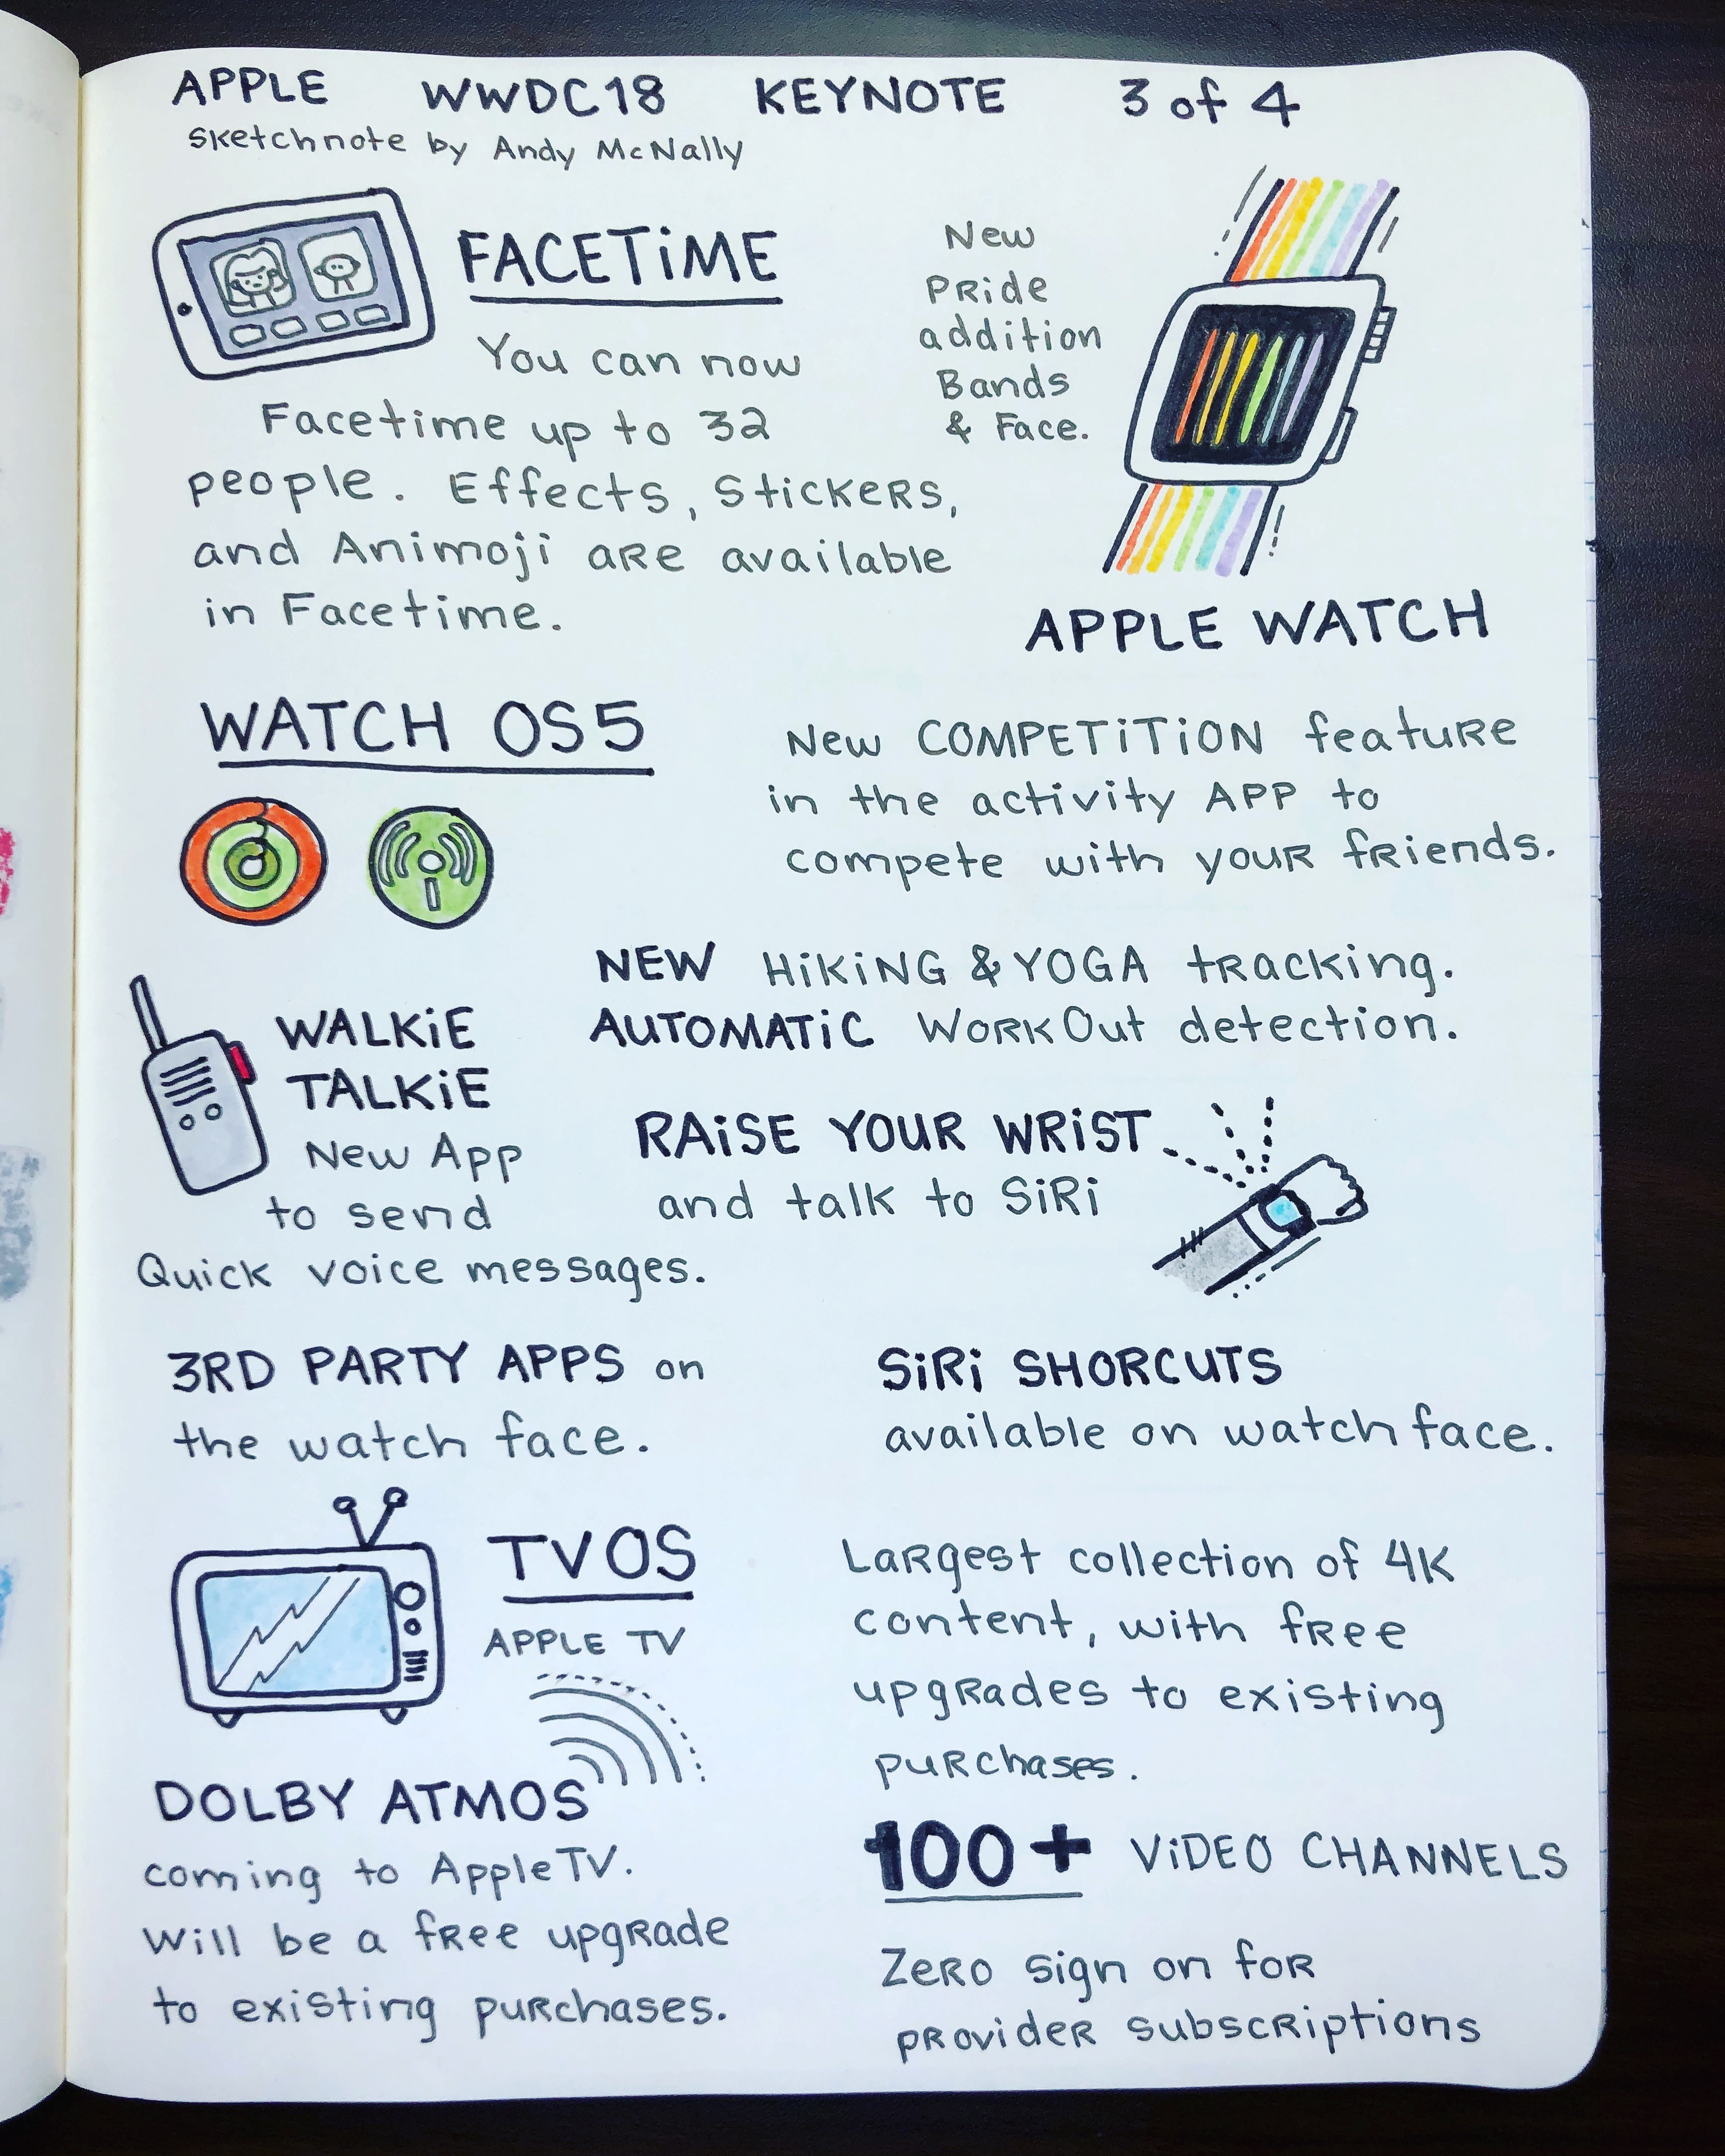 APPLE WWDC18 KEYNOTE 3 of 4
Sketchnote by Andy McNally
FACETiME
You can now
Facetime up to 32
people. Effects, Stickers,
and Animoji are available
in Facetime.
New
Pride
addition
Bands
& Face.
APPLE WATCH
WATCH OS5
New COMPETiTiON feature
in the activity APP to
compete with your friends.
NEW HiKiNG & YOGA tracking.
AUTOMATiC WorkOut detection.
WALKiE
TALKiE
New App
to send
Quick voice messages.
RAiSE YOUR WRiST
and talk to SiRi
3RD PARTY APPS on
the watch face.
SiRi SHORCUTS
available on watch face.
TVOS
APPLE TV
DOLBY ATMOS
coming to Apple TV.
Will be a free upgrade
to existing purchases.
Largest collection of 4K
content, with free
upgrades to existing
purchases.
100+ ViDEO CHANNELS
Zero sign on for
provider subscriptions